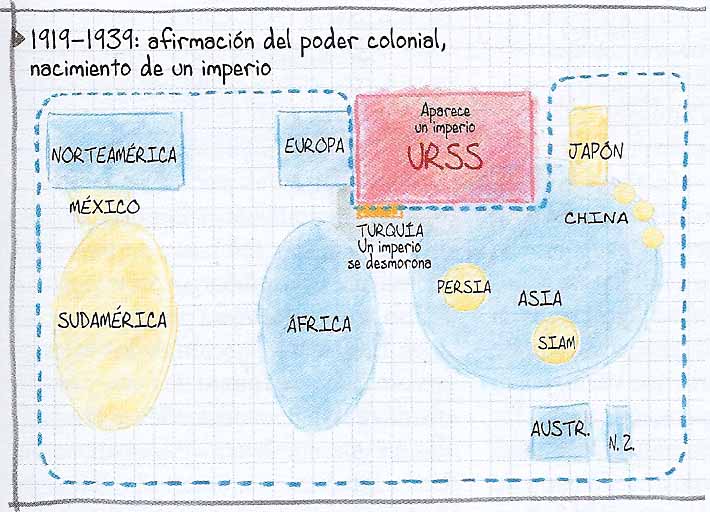 1919–1939: afirmación del poder colonial,
nacimiento de un imperio
NORTEAMÉRICA
EUROPA
Aparece
un imperio
URSS
JAPÓN
MÉXICO
CHINA
TURQUÍA
Un imperio
se desmorona
PERSIA
ASIA
SUDAMÉRICA
ÁFRICA
SIAM
AUSTR.
N. Z.